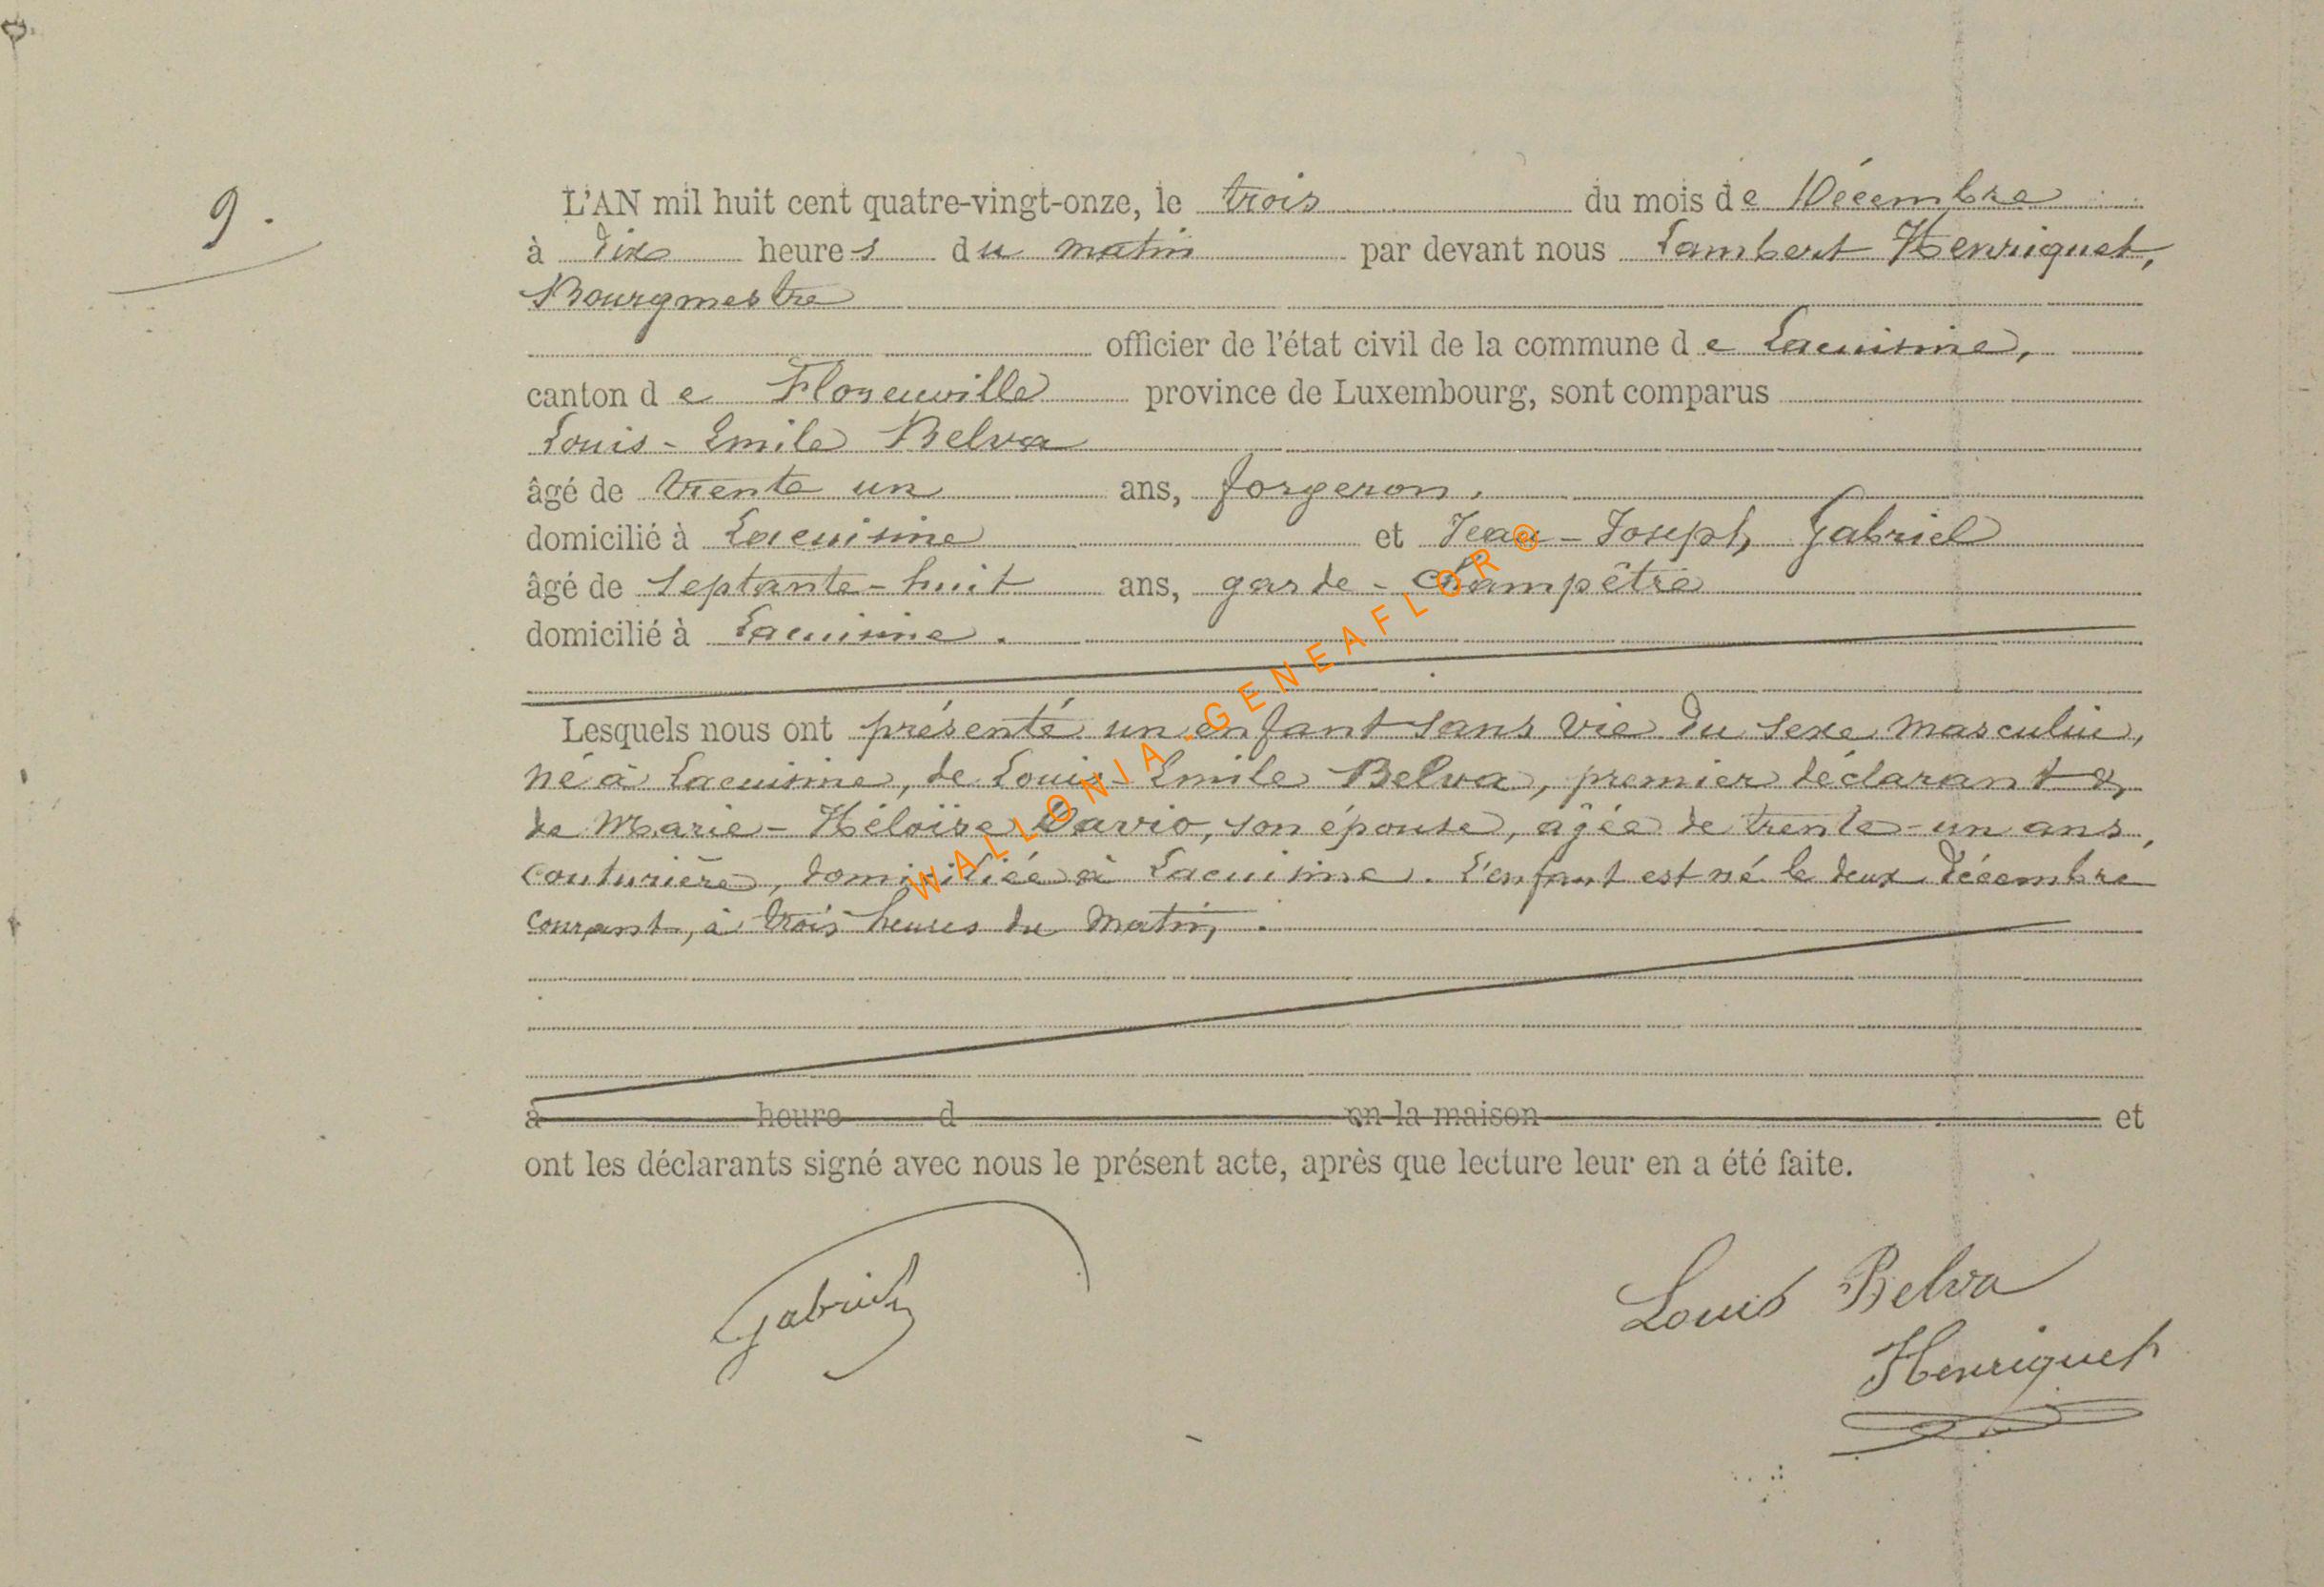 9.
L'AN mil huit cent quatre-vingt-onze, le trois du mois de Décembre
à dix heures du matin par devant nous Lambert Henriquet,
Bourgmestre
officier de l'état civil de la commune de Lacuisine,
canton de Florenville province de Luxembourg, sont comparus
Louis-Emile Belva
âgé de trente un ans, forgeron,
domicilié à Lacuisine et Jean-Joseph Gabriel
âgé de septante-huit ans, garde-champêtre
domicilié à Lacuisine.
Lesquels nous ont présenté un enfant sans vie du sexe masculin,
né à Lacuisine, de Louis-Emile Belva, premier déclarant &
de Marie-Héloïse Davio, son épouse, âgée de trente-un ans,
couturière, domiciliée à Lacuisine. L'enfant est né le deux décembre
courant, à trois heures du matin.
à heure d en la maison et
ont les déclarants signé avec nous le présent acte, après que lecture leur en a été faite.
Gabriel
Louis Belva
Henriquet
WALLONIA-GENEAFLOR®